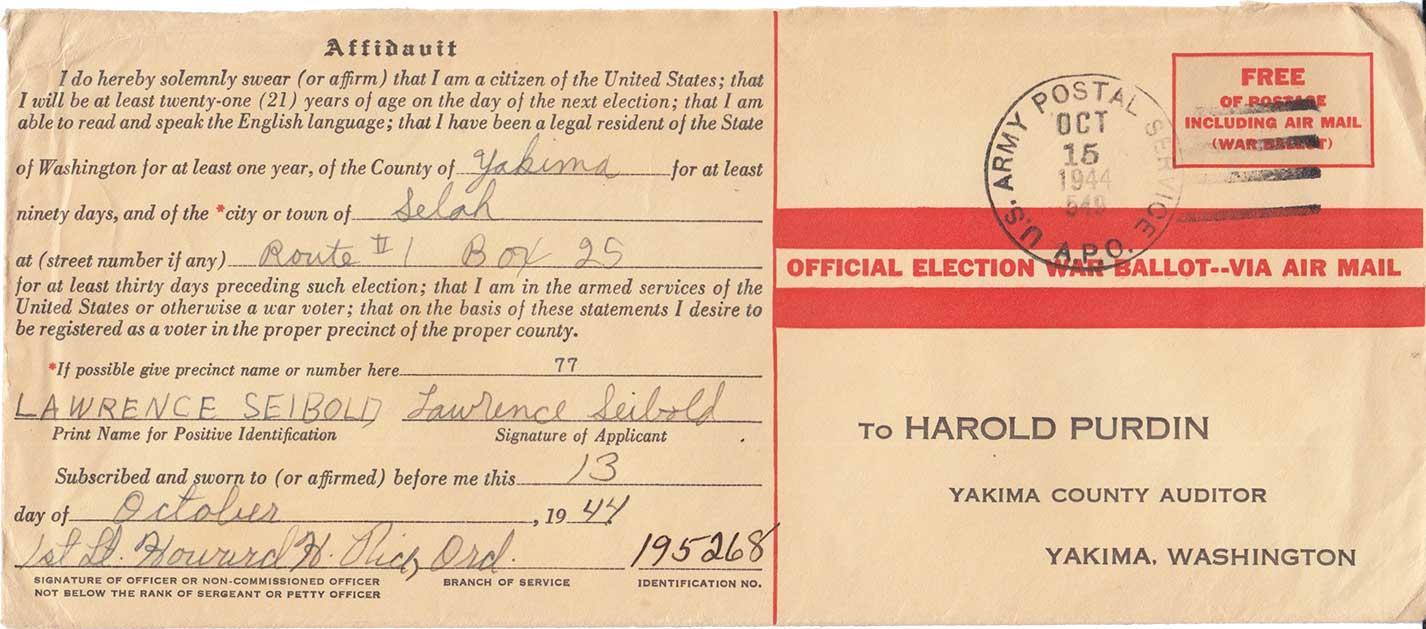 Affidavit
I do hereby solemnly swear (or affirm) that I am a citizen of the United States; that
I will be at least twenty-one (21) years of age on the day of the next election; that I am
able to read and speak the English language; that I have been a legal resident of the State
of Washington for at least one year, of the County of Yakima for at least
ninety days, and of the *city or town of Selah
at (street number if any) Route #1 Box 25
for at least thirty days preceding such election; that I am in the armed services of the
United States or otherwise a war voter; that on the basis of these statements I desire to
be registered as a voter in the proper precinct of the proper county.
*If possible give precinct name or number here 77
LAWRENCE SEIBOLD Lawrence Seibold
Print Name for Positive Identification Signature of Applicant
Subscribed and sworn to (or affirmed) before me this 13
day of October, 1944
1st Lt. Howard H. Rich, Ord. 195268
SIGNATURE OF OFFICER OR NON-COMMISSIONED OFFICER BRANCH OF SERVICE IDENTIFICATION NO.
NOT BELOW THE RANK OF SERGEANT OR PETTY OFFICER
U.S. ARMY POSTAL SERVICE A.P.O.
OCT
15
1944
549
FREE
OF POSTAGE
INCLUDING AIR MAIL
(WAR BALLOT)
OFFICIAL ELECTION WAR BALLOT--VIA AIR MAIL
TO HAROLD PURDIN
YAKIMA COUNTY AUDITOR
YAKIMA, WASHINGTON